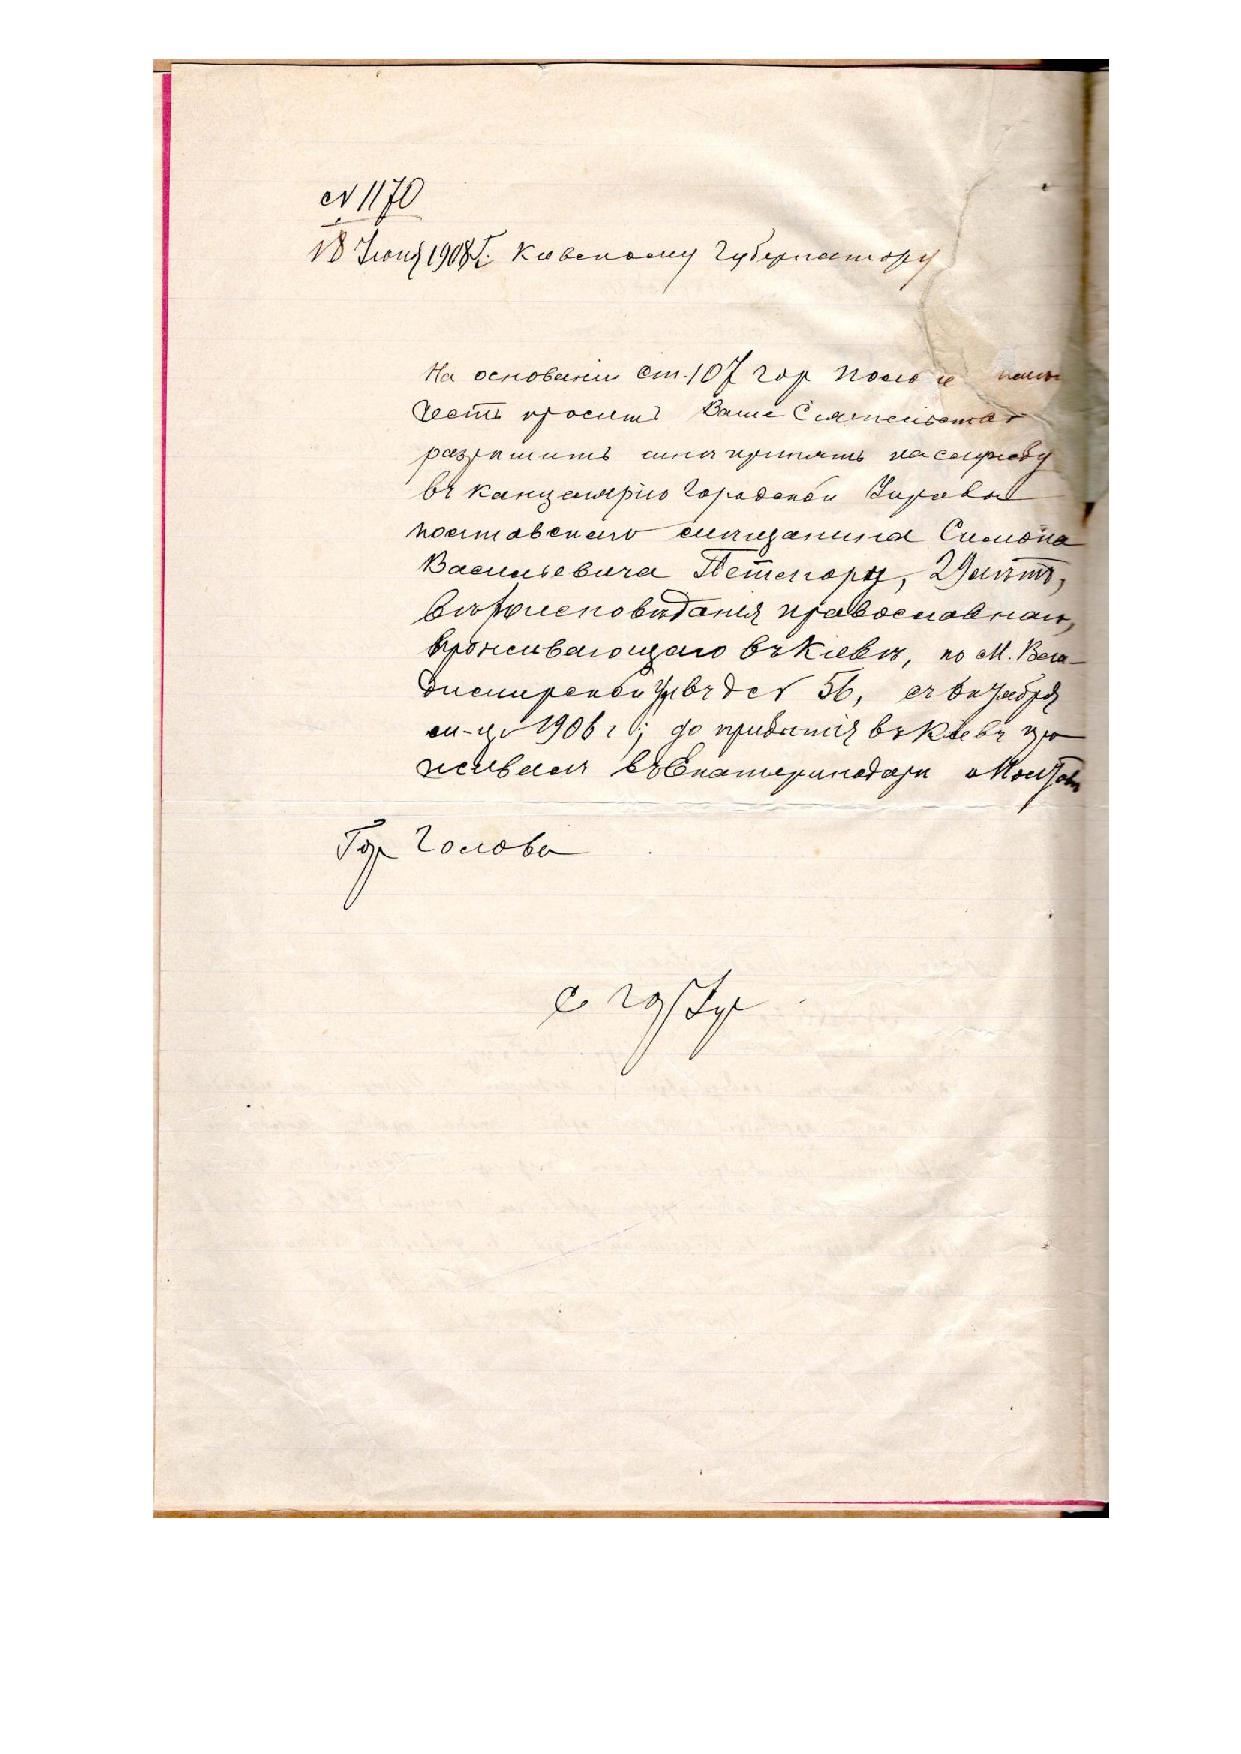 № 1170
18 Июня 1908 г. Киевскому Губернатору
На основании ст. 107 гор Поло имею
честь просить Ваше Сиятельство
разрешить мне принять на службу
въ канцелярію Городской Управы
полтавскаго мещанина Симона
Васильевича Петлюру, 29 летъ,
вероисповеданія православнаго,
проживающаго въ Киеве, по М. Вла-
димирской ул въ д № 56, съ Октября
м-ца 1906 г; до прибытія въ Киевъ про
живалъ въ Екатеринодаре и
Гор Голова